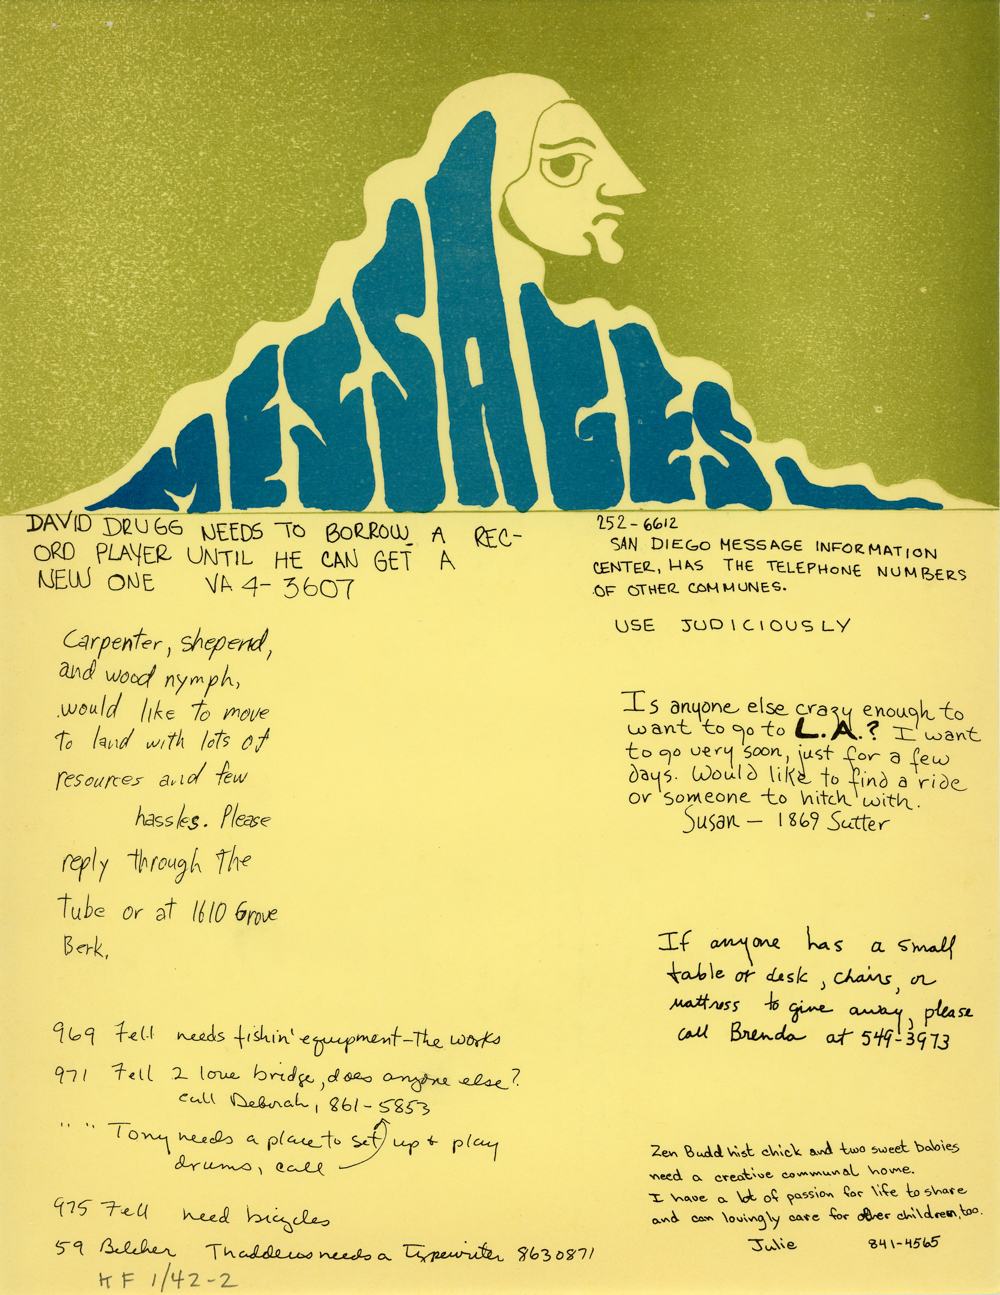 MESSAGES
DAVID DRUGG NEEDS TO BORROW A REC-
ORD PLAYER UNTIL HE CAN GET A
NEW ONE VA 4-3607
Carpenter, sheperd,
and wood nymph,
would like to move
to land with lots of
resources and few
hassles. Please
reply through the
tube or at 1610 Grove
Berk,
969 Fell needs fishin' equipment-the works
971 Fell 2 love bridge, does anyone else?
call Deborah, 861-5853
" " Tony needs a place to set up & play
drums, call
975 Fell need bicycles
59 Belcher Thaddeus needs a Typewriter 8630871
KF 1/42-2
252-6612
SAN DIEGO MESSAGE INFORMATION
CENTER, HAS THE TELEPHONE NUMBERS
OF OTHER COMMUNES.
USE JUDICIOUSLY
Is anyone else crazy enough to
want to go to L.A.? I want
to go very soon, just for a few
days. Would like to find a ride
or someone to hitch with.
Susan - 1869 Sutter
If anyone has a small
table or desk, chairs, or
mattress to give away, please
call Brenda at 549-3973
Zen Buddhist chick and two sweet babies
need a creative communal home.
I have a lot of passion for life to share
and can lovingly care for other children, too.
Julie 841-4565